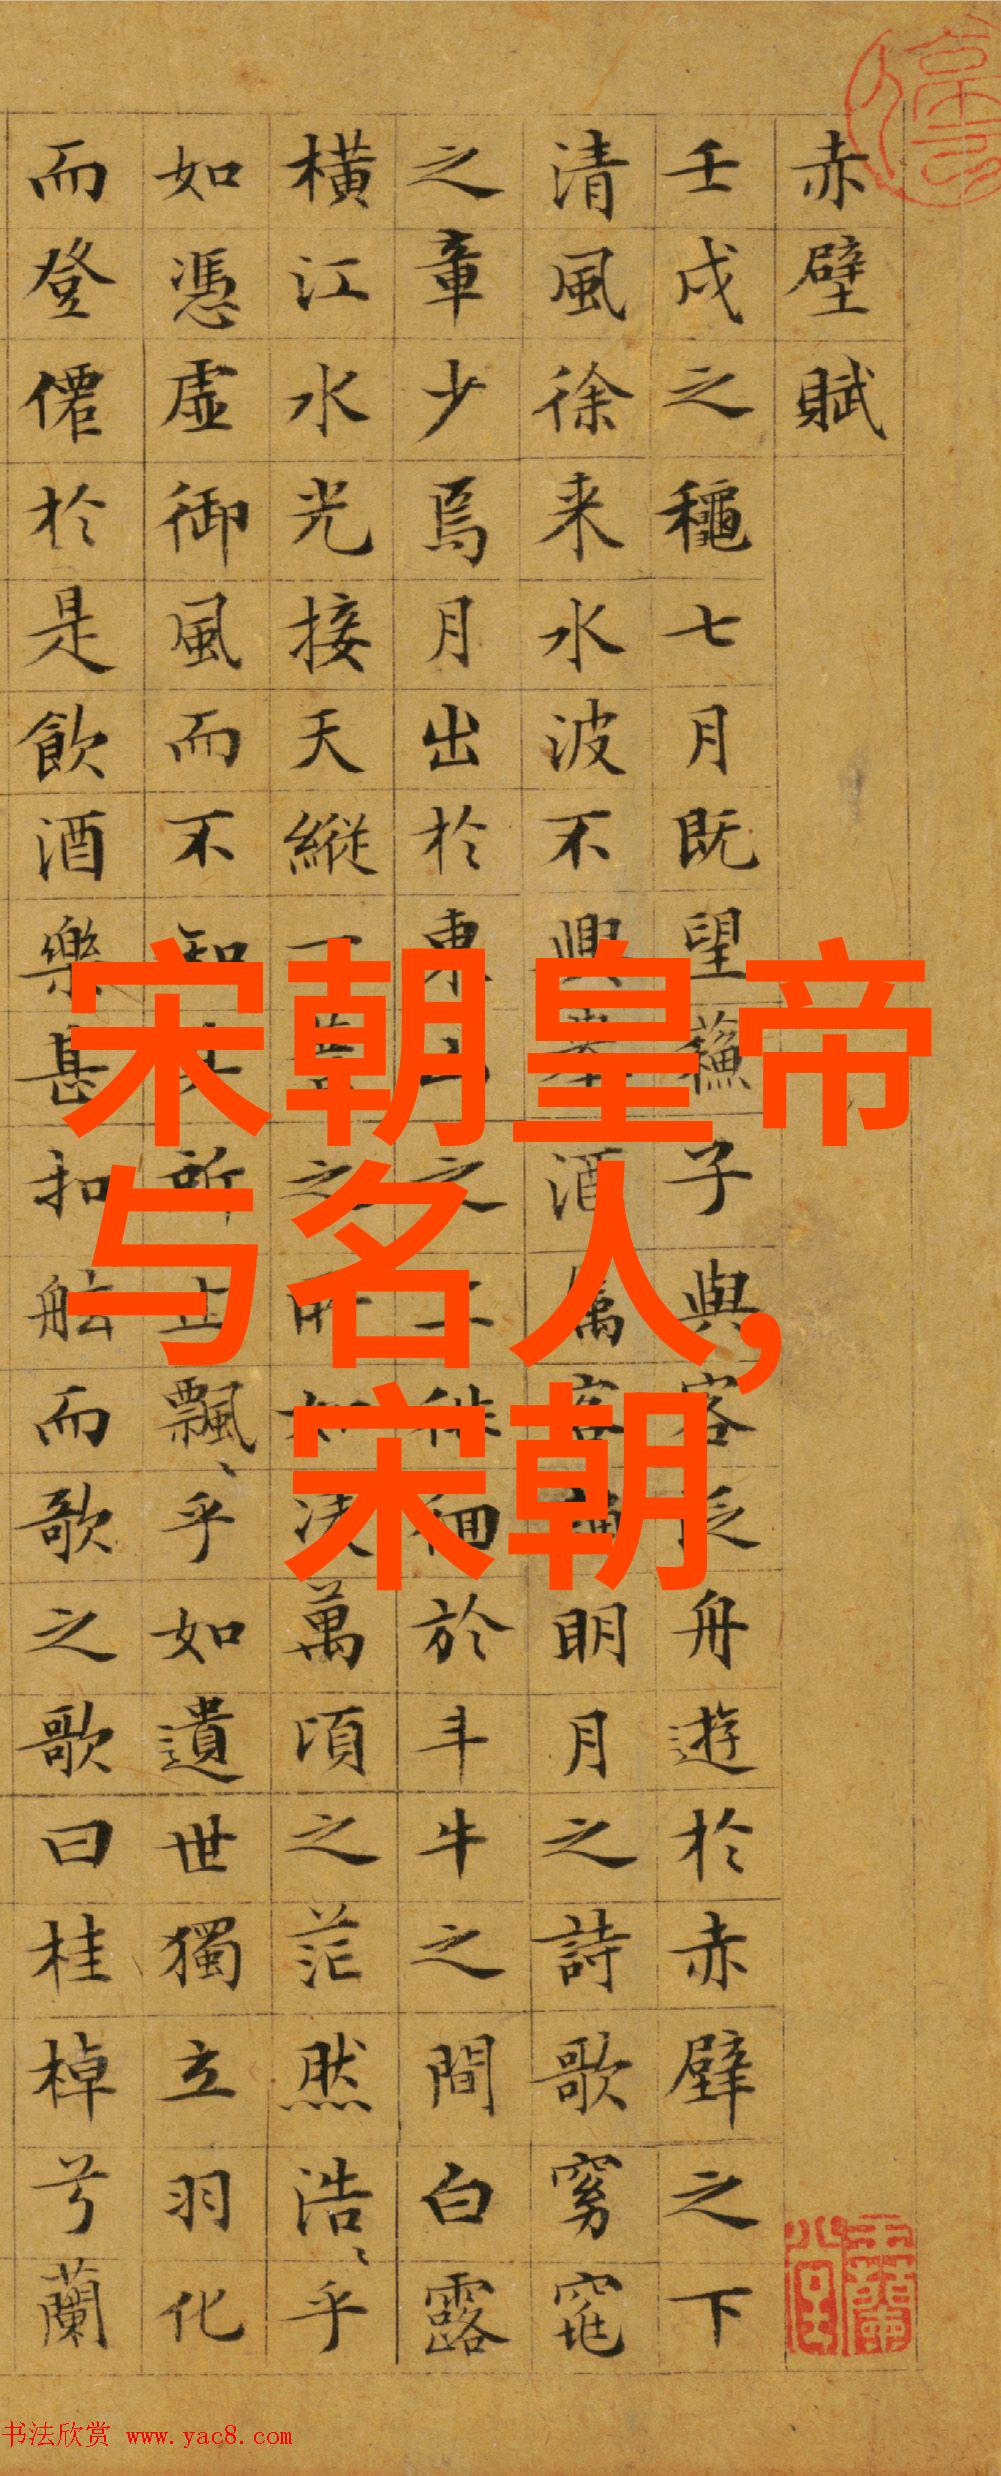 赤壁賦
壬戌之龝七月既望蘓子與客泛舟遊於赤壁之下
清風徐来水波不興舉酒属客誦明月之詩歌窈窕
之章少焉月出於東山之上徘徊於斗牛之間白露
横江水光接天縱一葦之所如凌萬頃之茫然浩〻乎
如憑虚御風而不知其所止飄〻乎如遺世獨立羽化
而登僊於是飲酒樂甚扣舷而歌之歌曰桂棹兮蘭
宋朝皇帝
与名人,
宋朝
书法欣赏 www.yac8.com